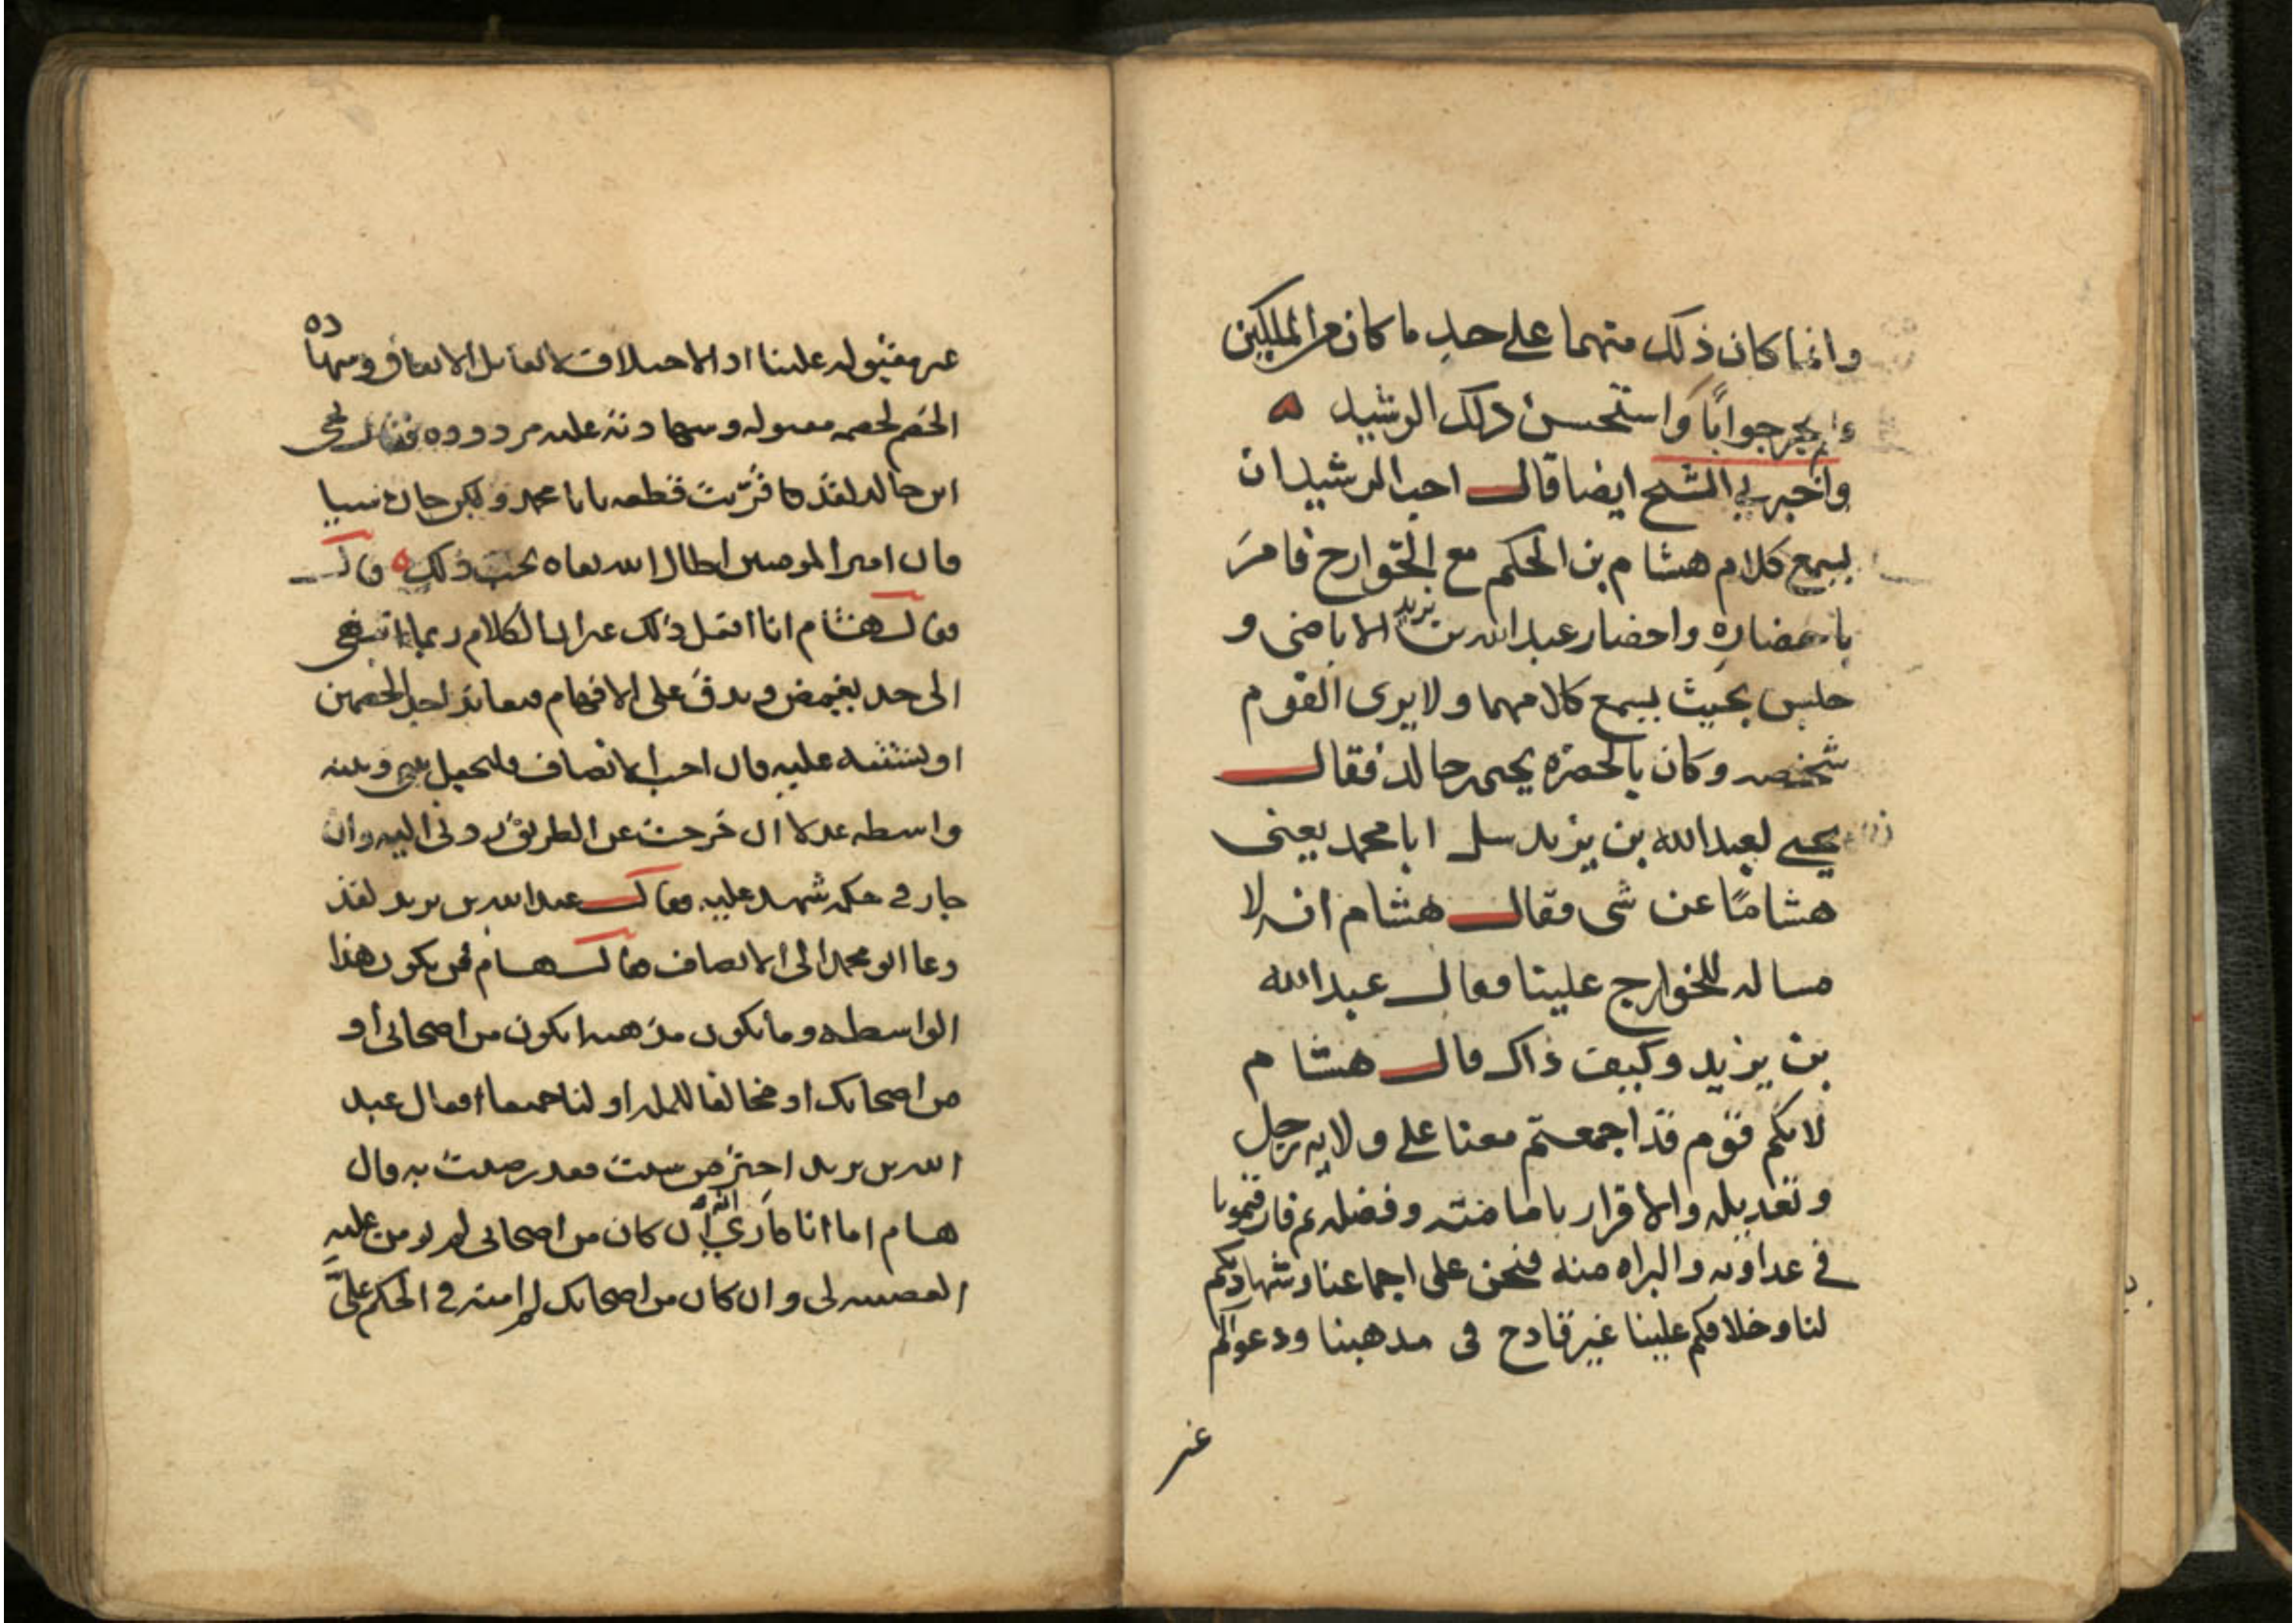 وانما كان ذلك منهما على حد ما كان من الملكين
ولم يحر جوابًا واستحسن ذلك الرشيد
واخبرني الشيخ ايضا قال احب الرشيد ان
يسمع كلام هشام بن الحكم مع الخوارج فامر
باحضاره واحضار عبدالله بن يزيد الاباضى و
جلس بحيث يسمع كلامهما ولا يرى القوم
شخصه وكان بالحضرة يحيى بن خالد فقال
يحيى لعبدالله بن يزيد سل ابا محمد يعنى
هشامًا عن شى فقال هشام انه لا
مساله للخوارج علينا فقال عبدالله
بن يزيد وكيف ذاك قال هشام
لانكم قوم قد اجمعتم معنا على ولايه رجل
وتعديله والاقرار بامامته وفضله ثم فارقتمونا
فى عداوته والبراه منه فنحن على اجماعنا وشهادتكم
لنا وخلافكم علينا غير قادح فى مذهبنا ودعواكم
غير
غير مقبوله علينا اذ الاختلاف لا يقابل الاتفاق وشهاده
الخصم لخصمه مقبوله وشهادته عليه مردوده فقال يحيى
ابن خالد لقد قربت قطعه يا با محمد ولكن جاره شيا
فان امير المومنين اطال الله بقاه يحب ذلك قال
فقال هشام انا افعل ذلك غير ان الكلام ربما انتهى
الى حد يغمض ويدق على الافهام فيعاند احد الخصمين
او يشتبه عليه فان احب الانصاف فليجعل بينى وبينه
واسطه عدلا ان خرجت عن الطريق ردنى اليه وان
جار فى حكمه شهد عليه فقال عبدالله بن يزيد لقد
دعا ابو محمد الى الانصاف فقال هشام فمن يكون هذا
الواسطه وما يكون مذهبه ايكون من اصحابى او
من اصحابك او مخالفا للمله او لنا جميعا فقال عبد
الله بن يزيد اختر من شيت فقد رضيت به قال
هشام اما انا فارى انه ان كان من اصحابى لم يومن عليه
العصبيه لى وان كان من اصحابك لم امنه فى الحكم علىّ